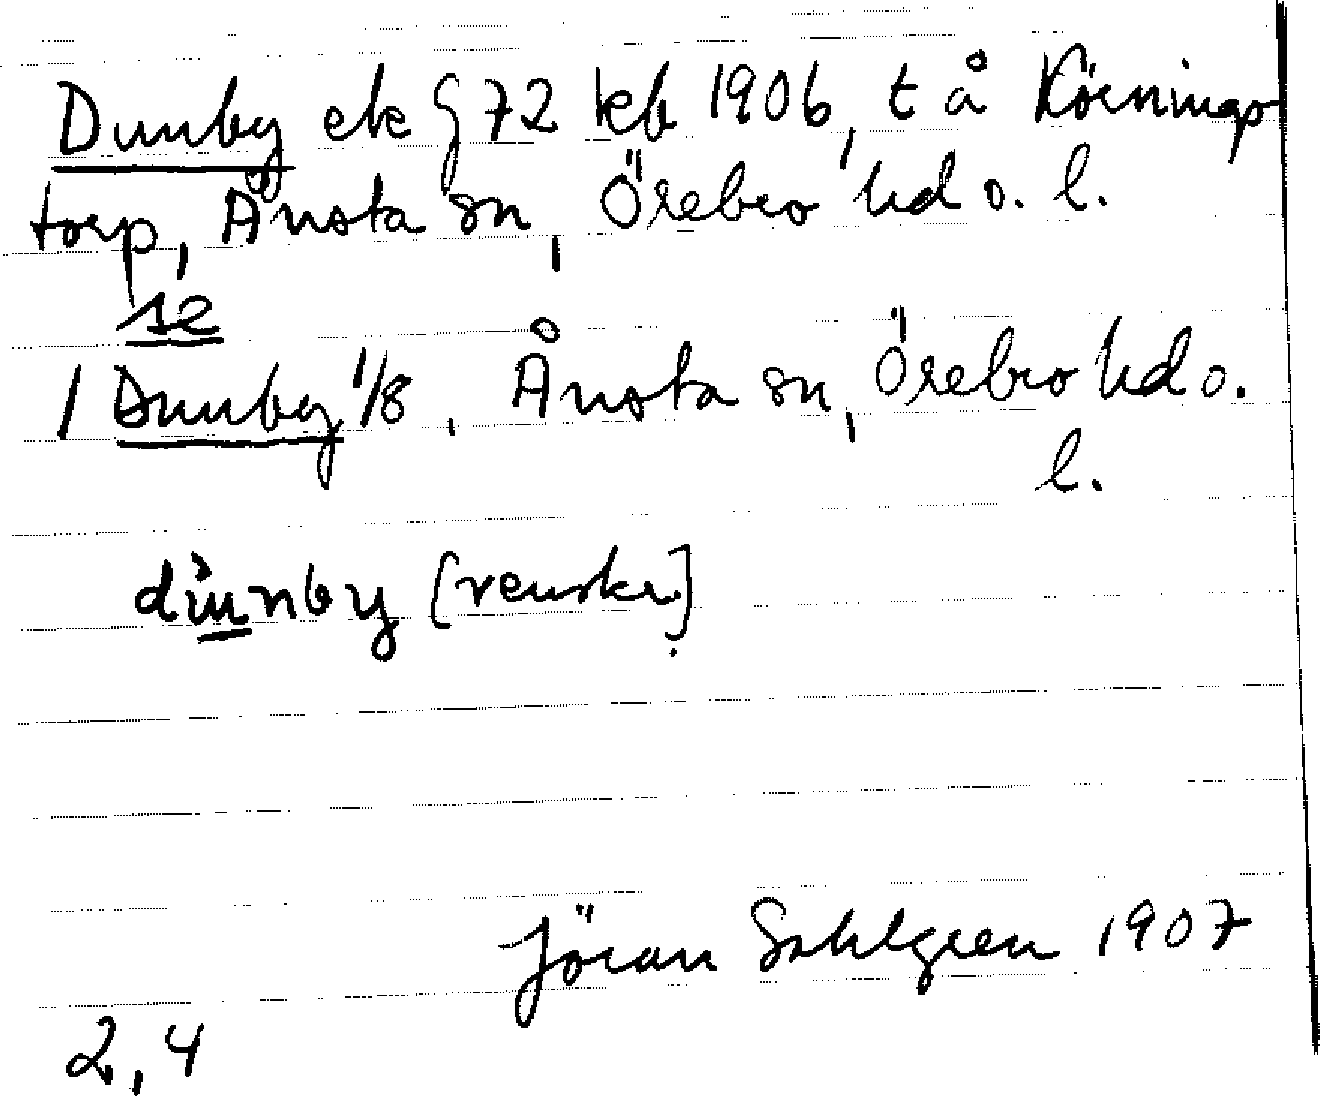 Dunby ek § 72 kb 1906, t å Körnings-
torp, Ånsta sn, Örebro hd o. l.
se
1 Dunby 1/8, Ånsta sn, Örebro hd o.
l.
dùnby [renskr.]
Jöran Sahlgren 1907
2,4